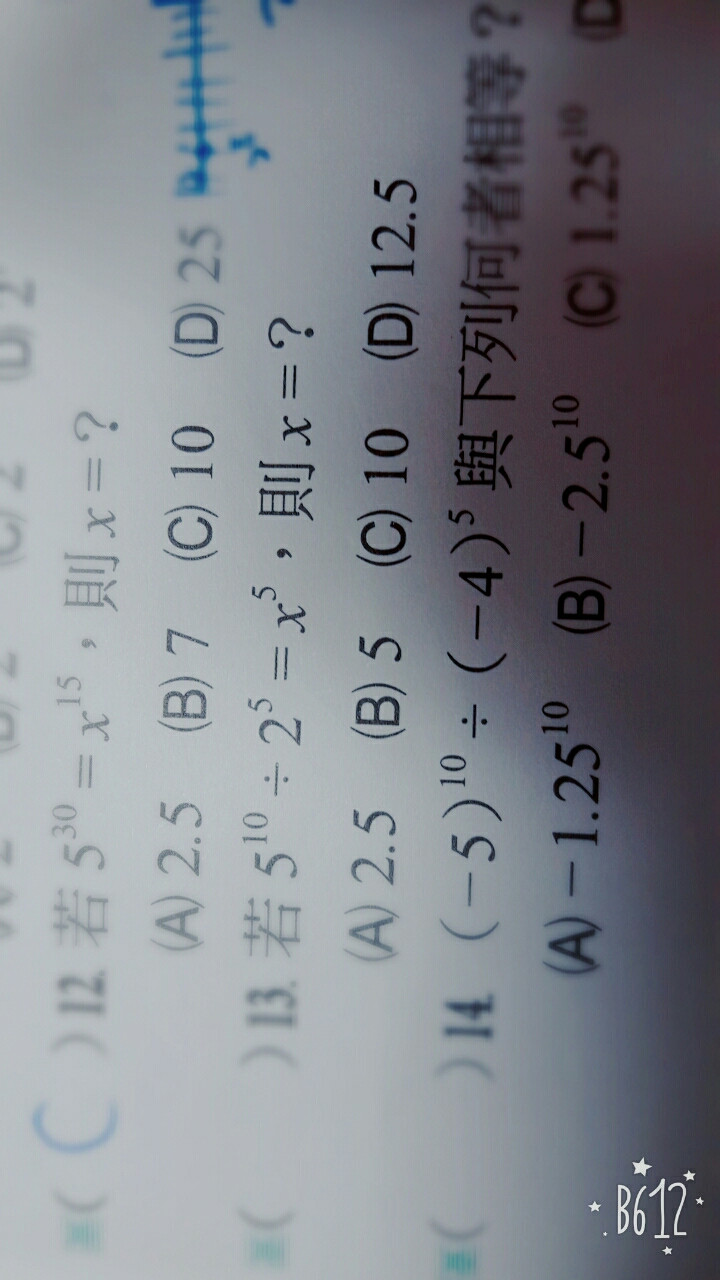 ) 12. 若 5³⁰=x¹⁵，則 x=？
(A) 2.5 (B) 7 (C) 10 (D) 25
) 13. 若 5¹⁰÷2⁵=x⁵，則 x=？
(A) 2.5 (B) 5 (C) 10 (D) 12.5
) 14. (−5)¹⁰÷(−4)⁵ 與下列何者相等？
(A) −1.25¹⁰ (B) −2.5¹⁰ (C) 1.25¹⁰ (D
B612